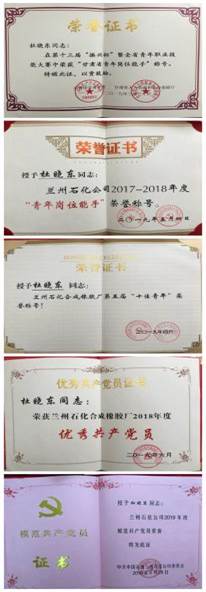 荣誉证书
杜晓东同志:
在第十三届“振兴杯”暨全省青年职业技
能大赛中荣获“甘肃省青年岗位能手”称号。
特颁此证,以资鼓励。
荣誉证书
授予杜晓东同志:
兰州石化公司2017-2018年度
“青年岗位能手”荣誉称号。
荣誉证书
授予杜晓东同志:
兰州石化合成橡胶厂第五届“十佳青年”荣
誉称号!
优秀共产党员证书
杜晓东同志:
荣获兰州石化合成橡胶厂2018年度
优秀共产党员
二〇一九年六月
模范共产党员
证书
授予杜晓东同志:
兰州石化公司2019年度
模范共产党员荣誉
特发此证